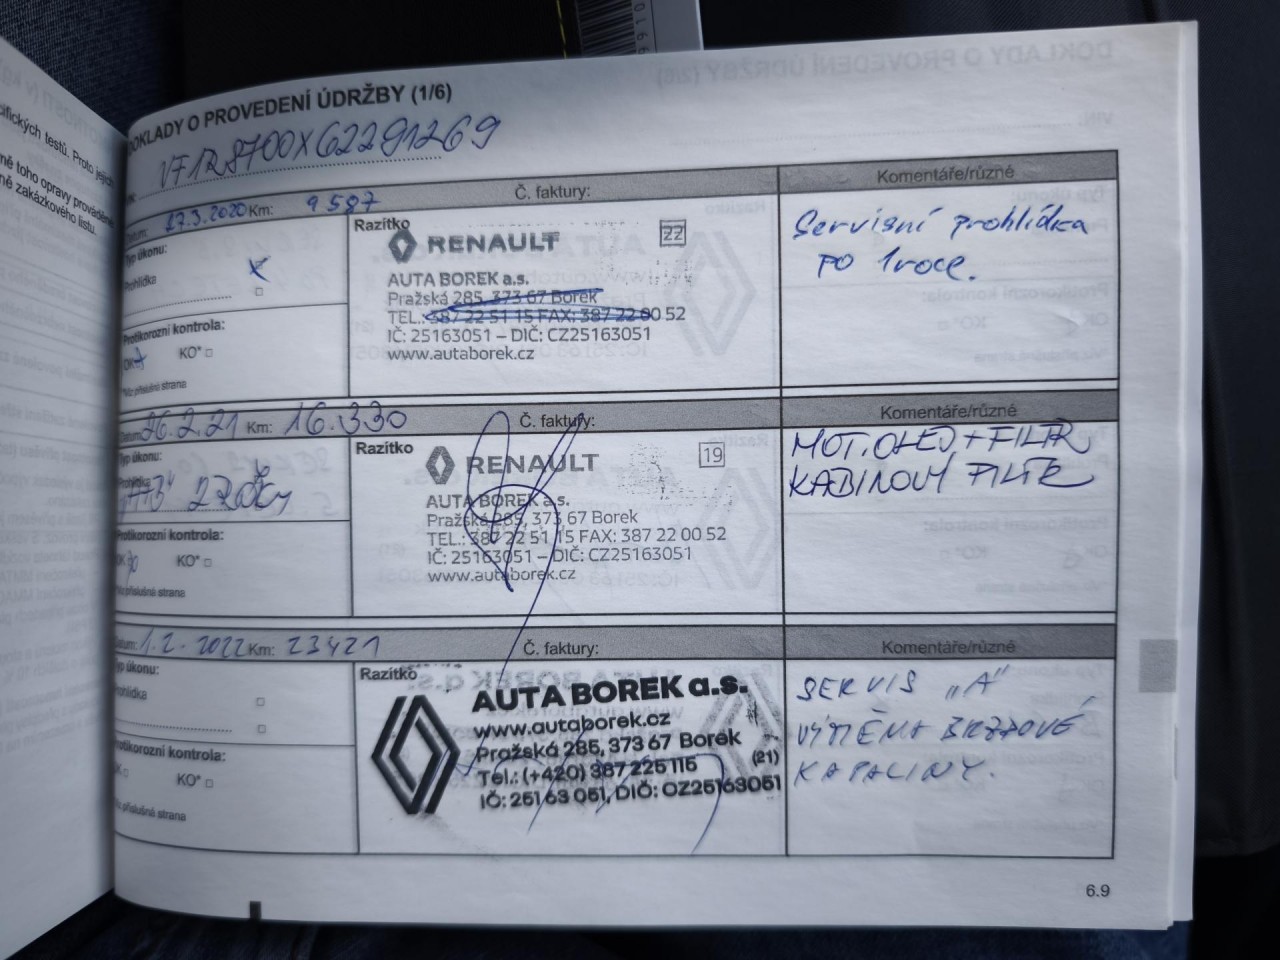 DOKLADY O PROVEDENÍ ÚDRŽBY (1/6)
VF1R8700X62291269
Datum: 17.3.2020 Km: 9 587
Č. faktury:
Komentáře/různé
Typ úkonu:
Prohlídka
Protikorozní kontrola:
OK
KO*
*Viz příslušná strana
Razítko
RENAULT
22
AUTA BOREK a.s.
Pražská 285, 373 67 Borek
TEL.: 387 22 51 15 FAX: 387 22 00 52
IČ: 25163051 – DIČ: CZ25163051
www.autaborek.cz
Servisní prohlídka
po 1roce.
Datum: 26.2.21 Km: 16.330
Č. faktury:
Komentáře/různé
Typ úkonu:
Prohlídka
2 ROKY
Protikorozní kontrola:
OK
KO*
*Viz příslušná strana
Razítko
RENAULT
19
AUTA BOREK a.s.
Pražská 285, 373 67 Borek
TEL.: 387 22 51 15 FAX: 387 22 00 52
IČ: 25163051 – DIČ: CZ25163051
www.autaborek.cz
MOT.OLEJ + FILTR,
KABINOVÝ FILTR
Datum: 1.2.2022 Km: 23421
Č. faktury:
Komentáře/různé
Typ úkonu:
Prohlídka
Protikorozní kontrola:
OK
KO*
*Viz příslušná strana
Razítko
AUTA BOREK a.s.
www.autaborek.cz
Pražská 285, 373 67 Borek
Tel.: (+420) 387 225 115 (21)
IČ: 251 63 051, DIČ: CZ25163051
SERVIS „A"
VÝMĚNA BRZDOVÉ
KAPALINY.
6.9